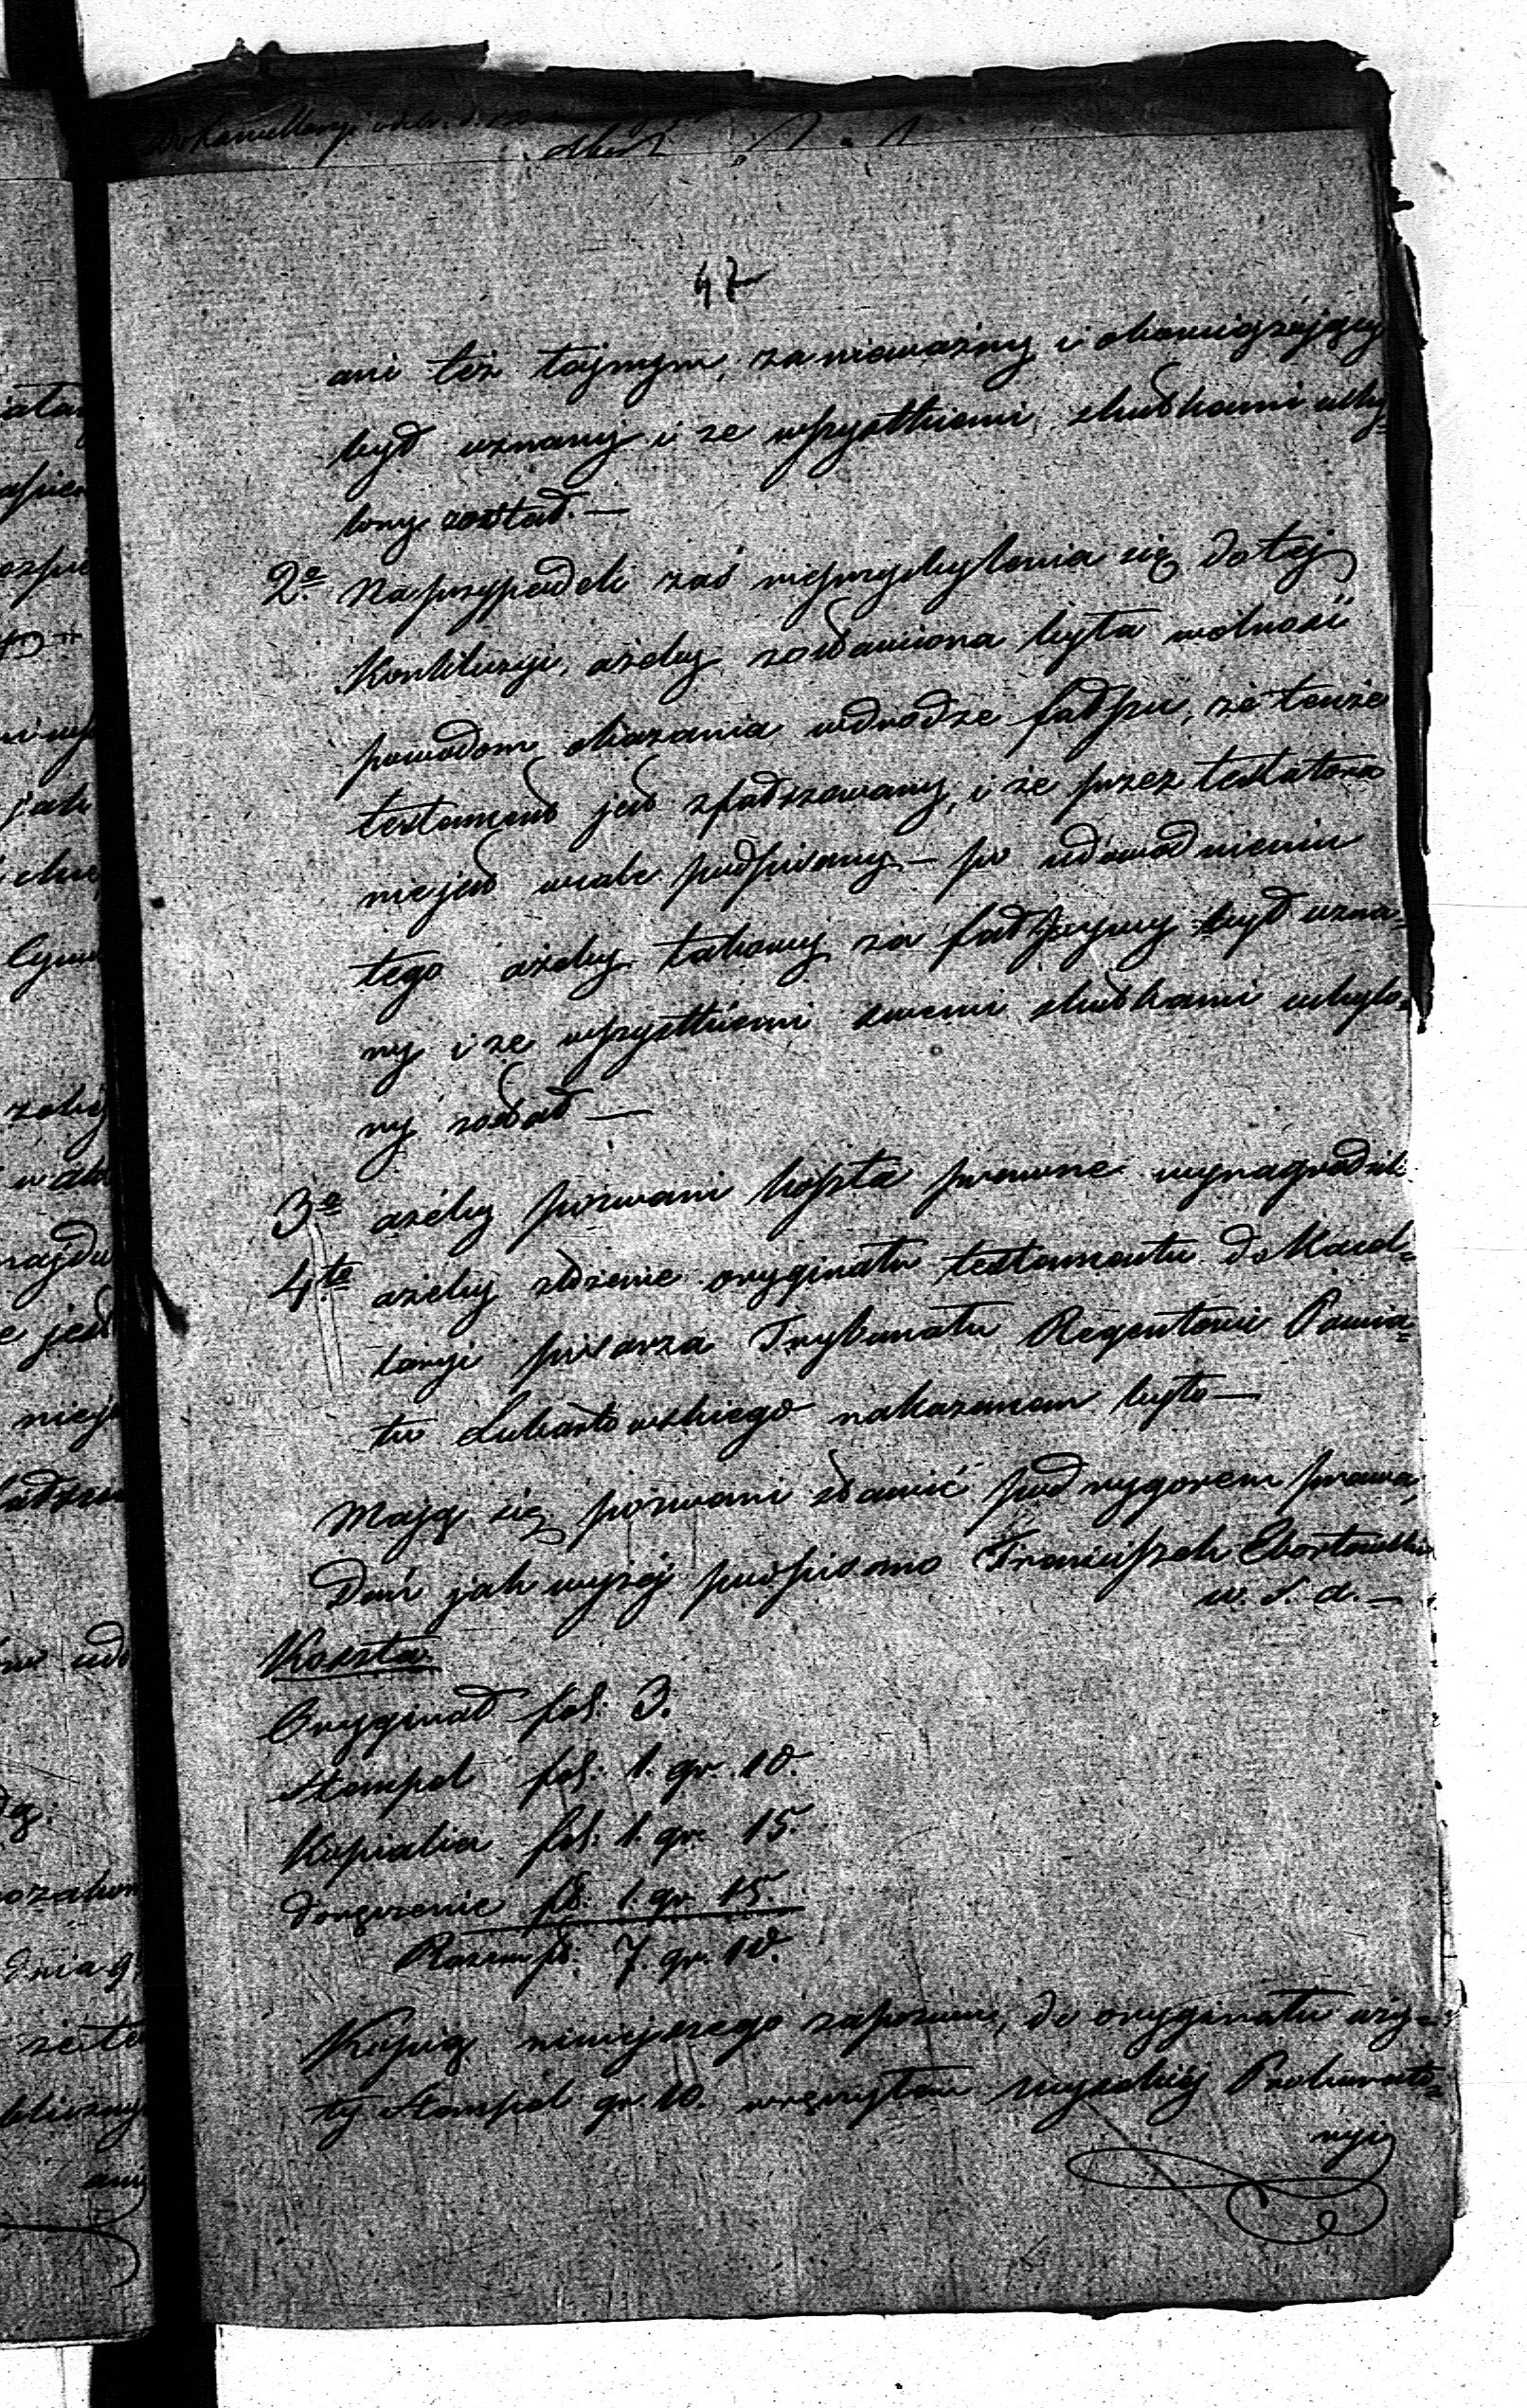 47
ani też tajnym, za nieważny i obowiązujący
był uznany i ze wszystkiemi skutkami uchy=
lony został. —
2o Na przypadek zaś nieprzychylenia się do tej
Konkluzyi, ażeby zostawiona była wolność
powodom okazania w drodze fałszu, że tenże
testament jest sfałszowany, i że przez testatora
nie jest wcale podpisany — po udowodnieniu
tego ażeby takowy za fałszywy był uzna=
ny i ze wszystkiemi swemi skutkami uchylo=
ny został —
3o ażeby pozwani koszta prawne wynagrodzili
4to ażeby złożenie oryginału testamentu do Kancel=
laryi pisarza Trybunału Regentowi Powia=
tu Lubartowskiego nakazanem było —
Mają się pozwani stawić pod rygorem prawa,
Dań jak wyżej podpisano Franciszek
w. s. a. —
Koszta.
Oryginał fol: 3.
Stempel fol: 1. gr. 10.
Kopialia fol: 1. gr. 15.
doręczenie fł: 1. gr. 15.
Razem fł: 7. gr. 10.
Kopią niniejszego zapozwu, do oryginału uży=
ty Stempel gr. 10. wręczyłem wysokiej Prokurato=
ryi